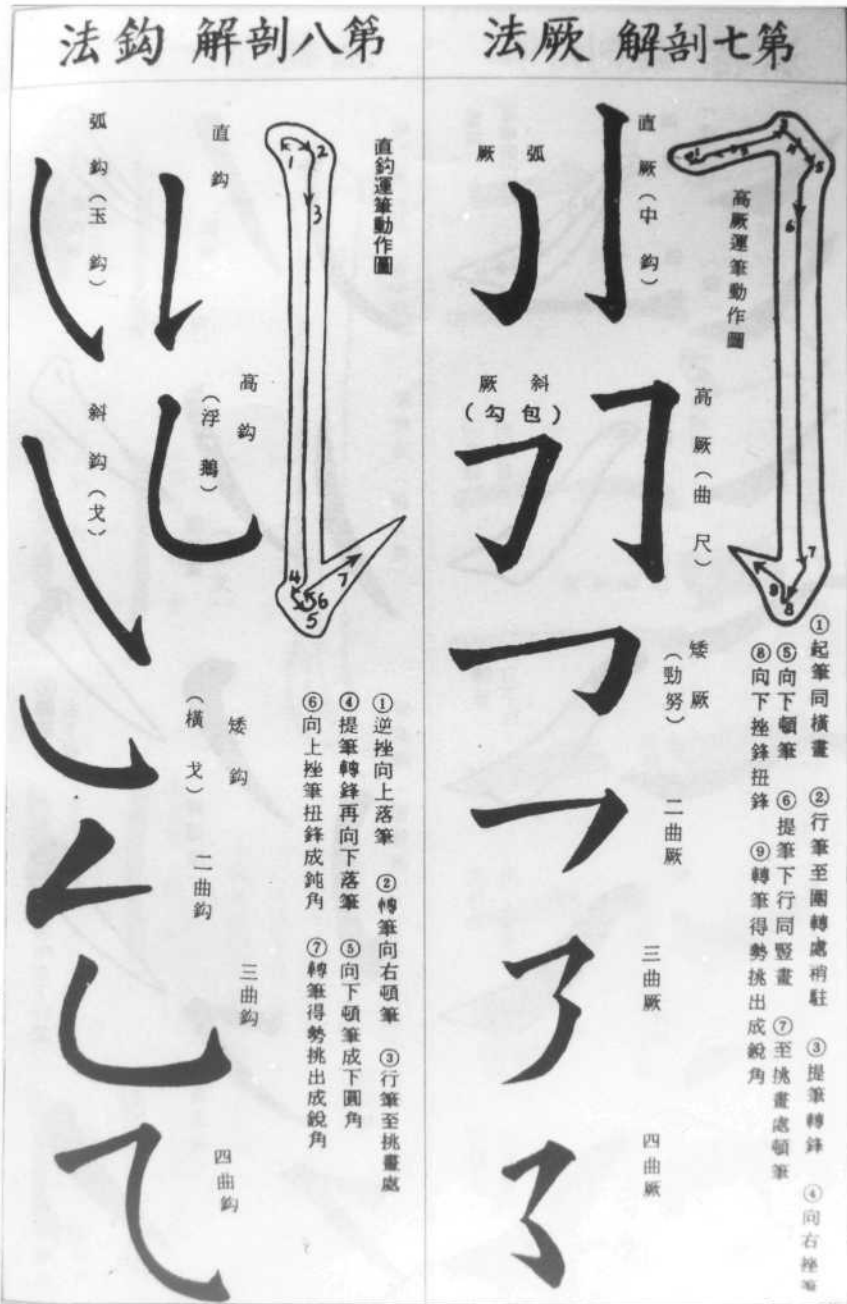 第七剖解 厥法
高厥運筆動作圖
直厥（中鈎）
弧厥
高厥（曲尺）
斜厥
（包勾）
矮厥
（勁努）
二曲厥
三曲厥
四曲厥
①起筆同橫畫 ②行筆至圍轉處稍駐 ③提筆轉鋒 ④向右挫筆
⑤向下頓筆 ⑥提筆下行同豎畫 ⑦至挑畫處頓筆
⑧向下挫鋒扭鋒 ⑨轉筆得勢挑出成銳角
第八剖解 鈎法
直鈎運筆動作圖
直鈎
弧鈎（玉鈎）
高鈎
（浮鵝）
斜鈎（戈）
矮鈎
（橫戈）
二曲鈎
三曲鈎
四曲鈎
①逆挫向上落筆 ②轉筆向右頓筆 ③行筆至挑畫處
④提筆轉鋒再向下落筆 ⑤向下頓筆成下圓角
⑥向上挫筆扭鋒成鈍角 ⑦轉筆得勢挑出成銳角